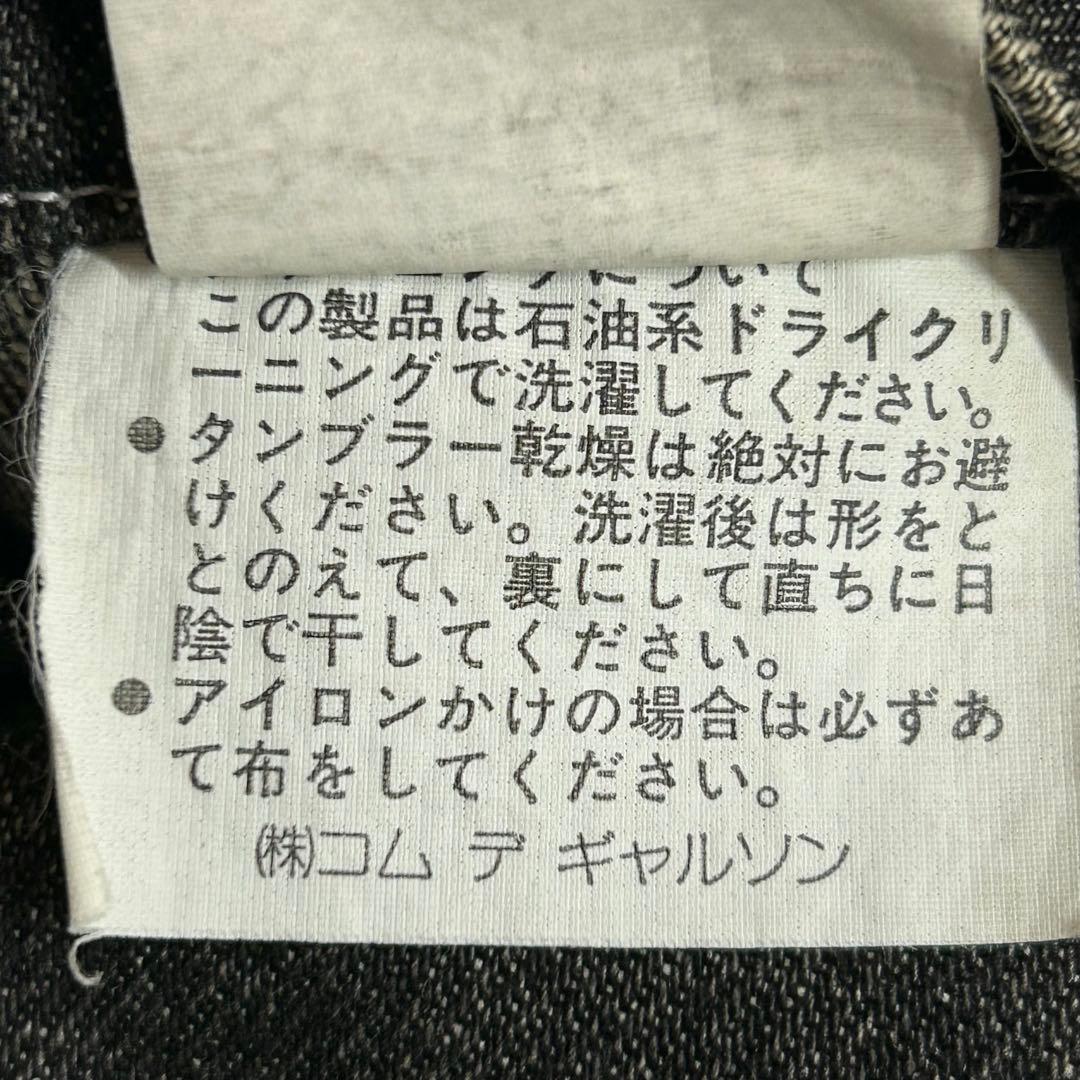 について
この製品は石油系ドライクリ
ーニングで洗濯してください。
●タンブラー乾燥は絶対にお避
けください。洗濯後は形をと
とのえて、裏にして直ちに日
陰で干してください。
●アイロンかけの場合は必ずあ
て布をしてください。
㈱コム デ ギャルソン